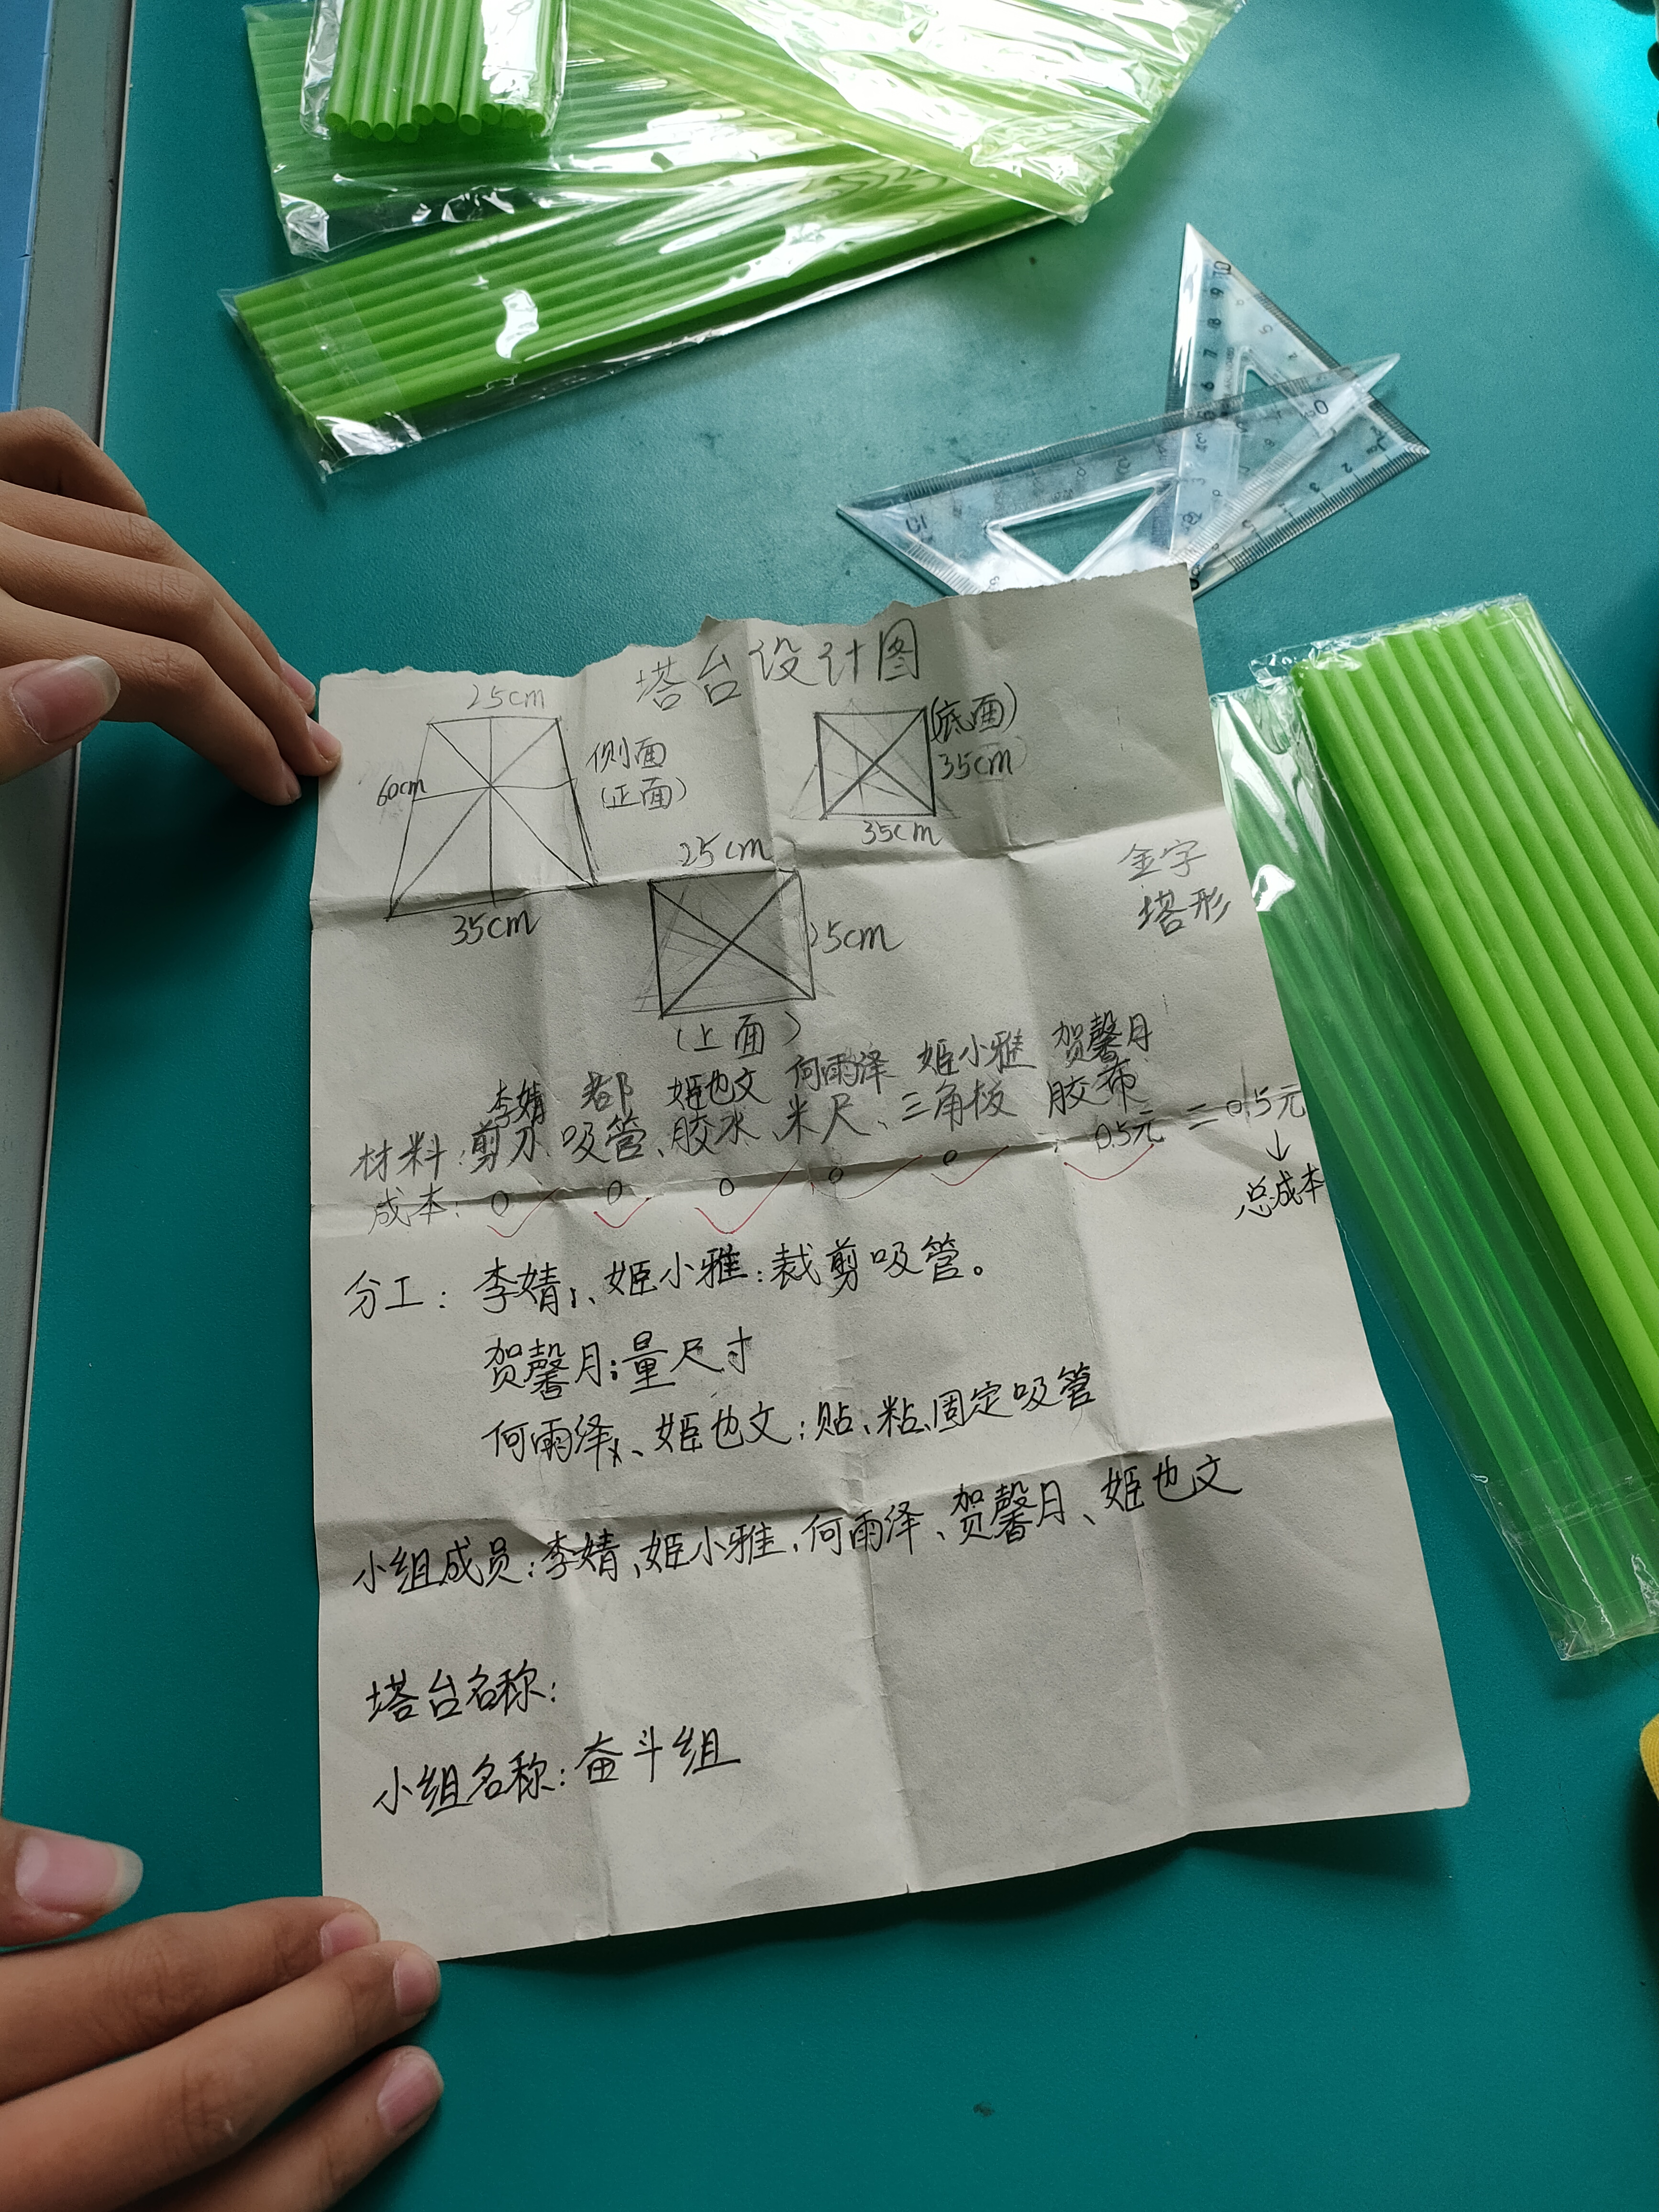 塔台设计图
25cm
60cm
侧面
(正面)
35cm
(底面)
35cm
35cm
25cm
25cm
(上面)
金字
塔形
李婧 都 姬也文 何雨泽 姬小雅 贺馨月
材料:剪刀、吸管、胶水、米尺、三角板 胶布
成本: 0 0 0 0 0 0.5元 = 0.5元
↓
总成本
分工: 李婧、姬小雅:裁剪吸管。
贺馨月:量尺寸
何雨泽、姬也文:贴、粘、固定吸管
小组成员:李婧、姬小雅、何雨泽、贺馨月、姬也文
塔台名称:
小组名称:奋斗组